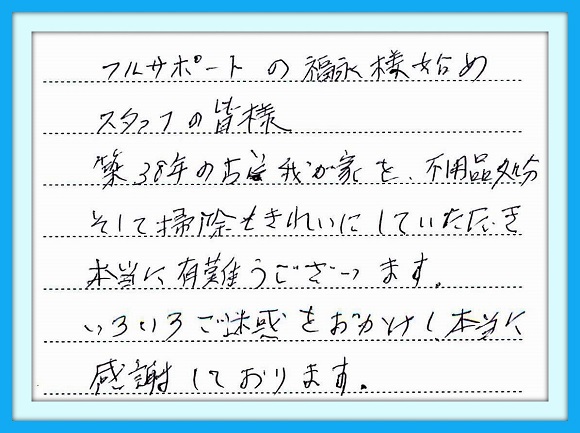 フルサポートの福永様始め
スタッフの皆様
築38年の古い我が家を、不用品処分
そして掃除もきれいにしていただき
本当に有難うございます。
いろいろご迷惑をおかけし本当に
感謝しております。